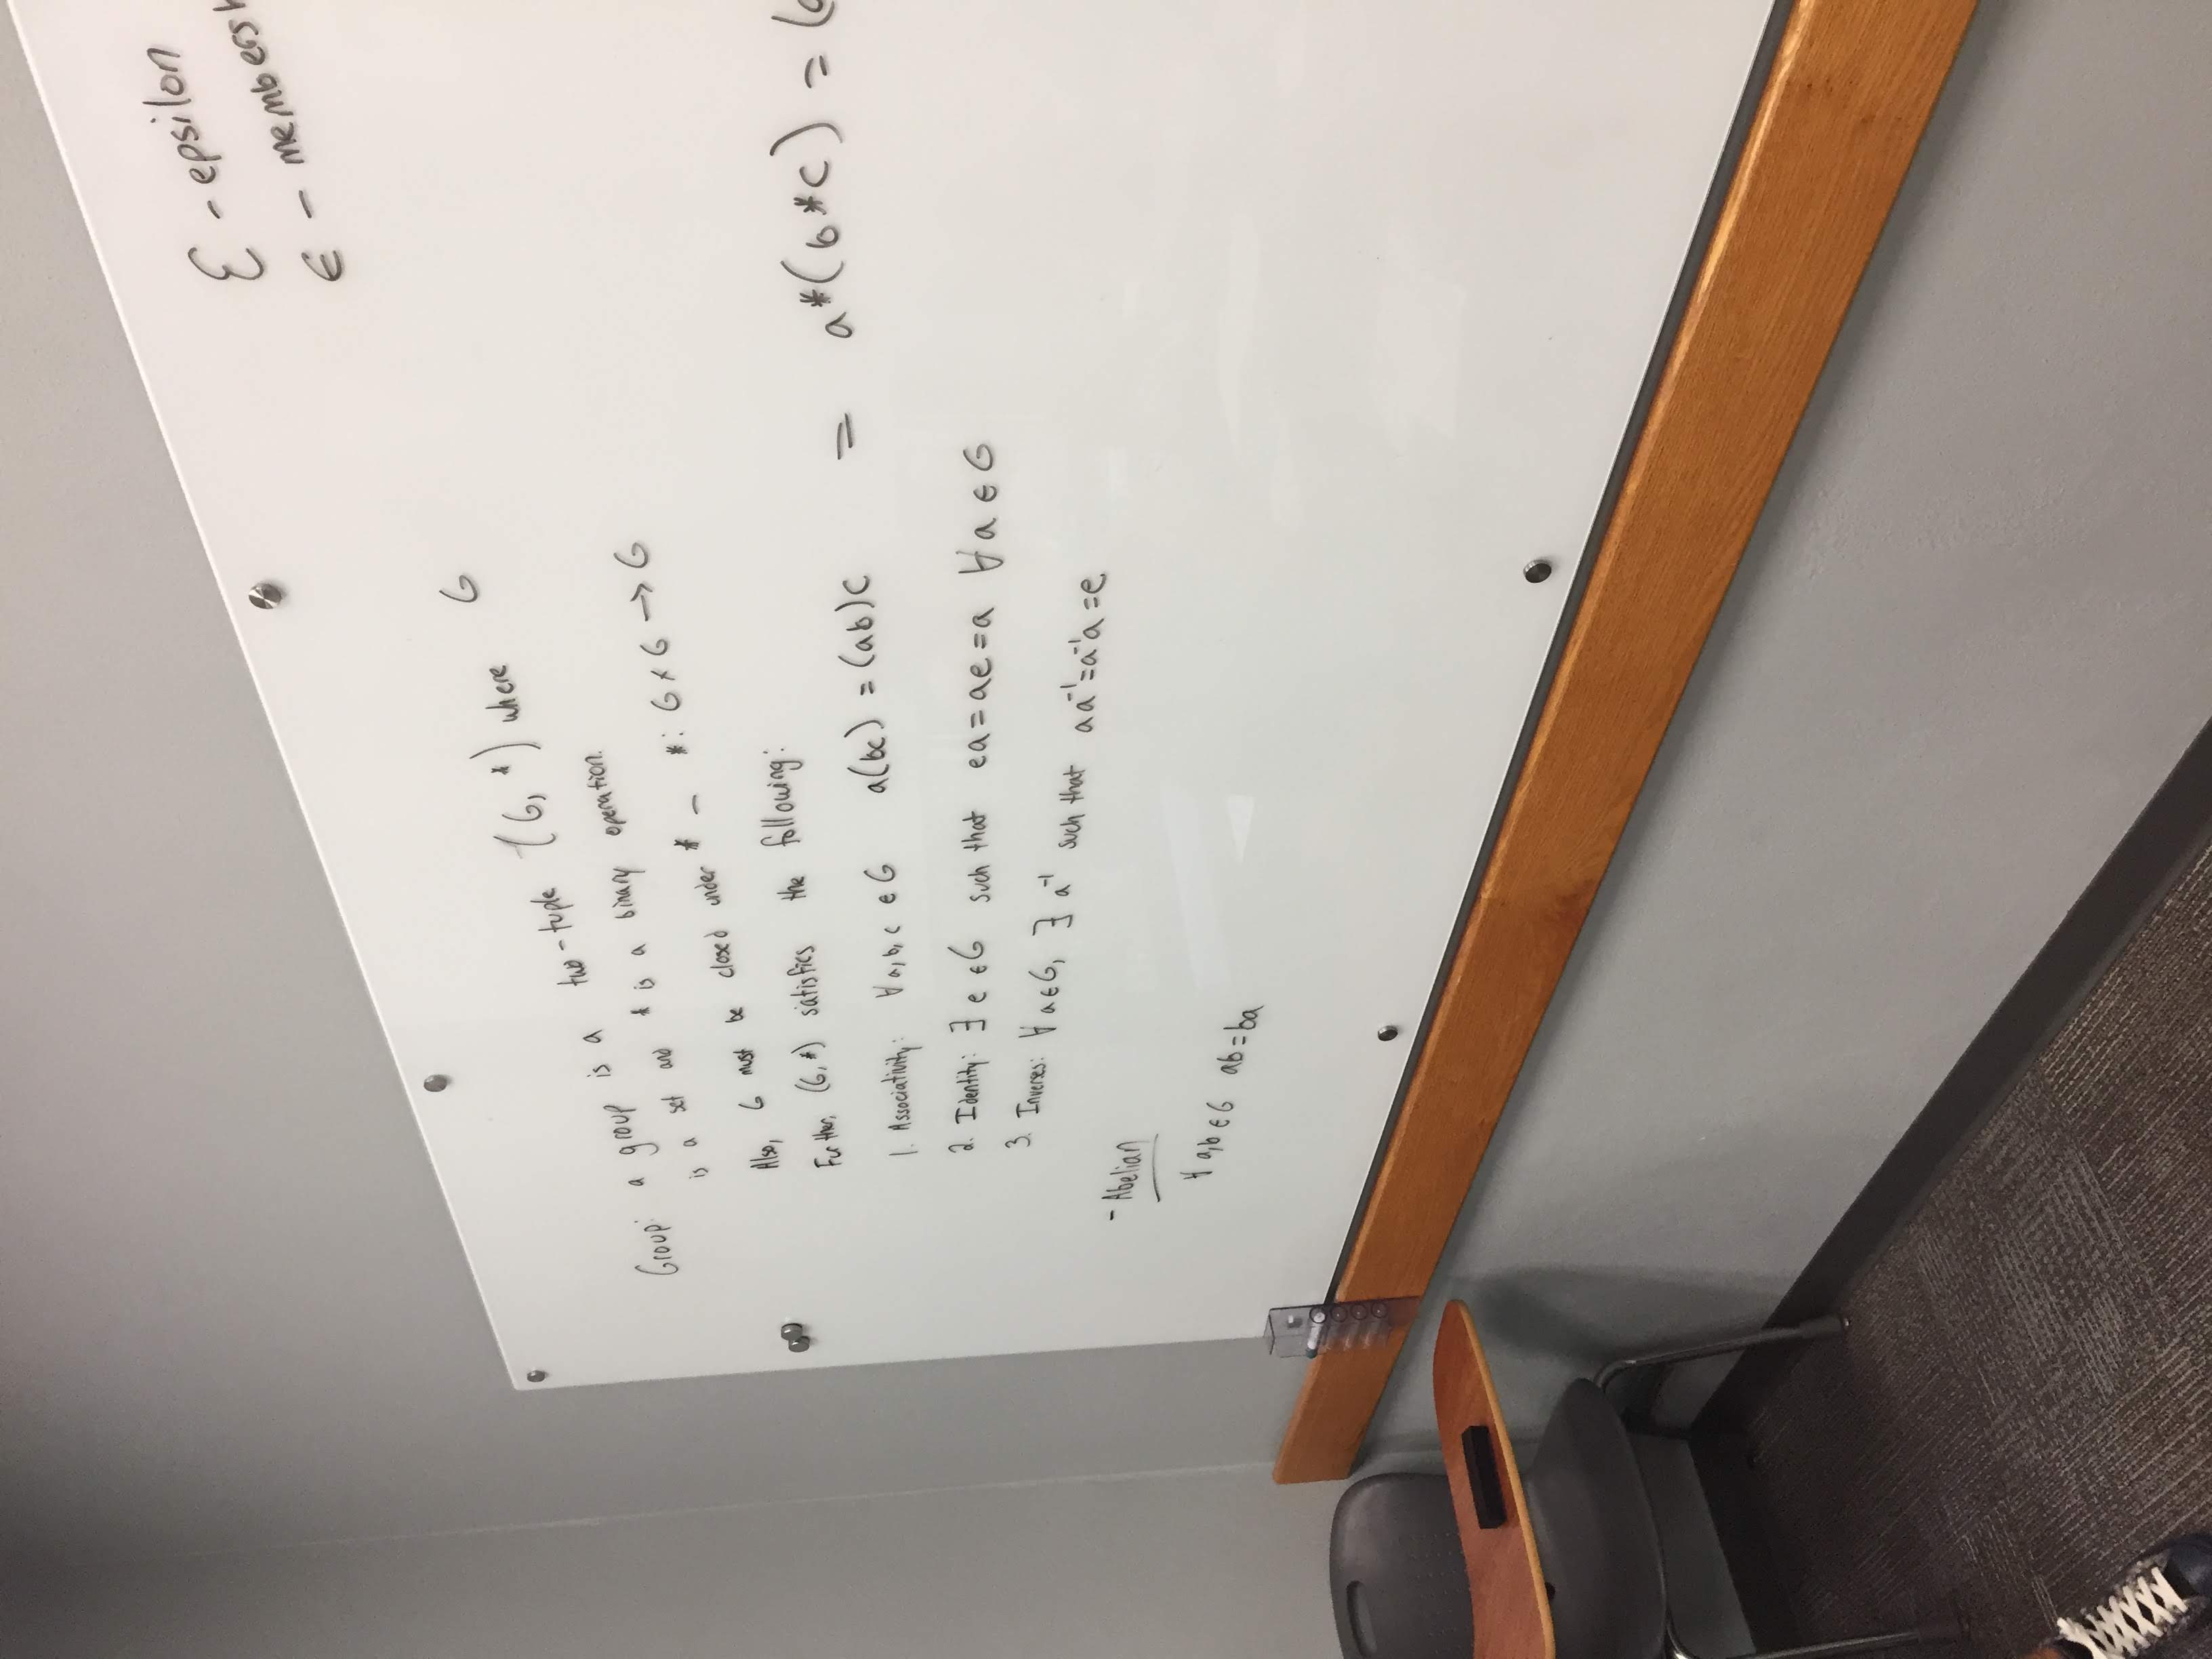 ε - epsilon
∈ -
Group: a group is a two-tuple (G, *) where G
is a set and * is a binary operation.
Also, G must be closed under * - *: G × G → G
Further, (G, *) satisfies the following:
1. Associativity: ∀ a, b, c ∈ G a(bc) = (ab)c = a*(b*c) = (
2. Identity: ∃ e ∈ G such that ea = ae = a ∀ a ∈ G
3. Inverses: ∀ a ∈ G, ∃ a⁻¹ such that aa⁻¹ = a⁻¹a = e
- Abelian
∀ a, b ∈ G ab = ba